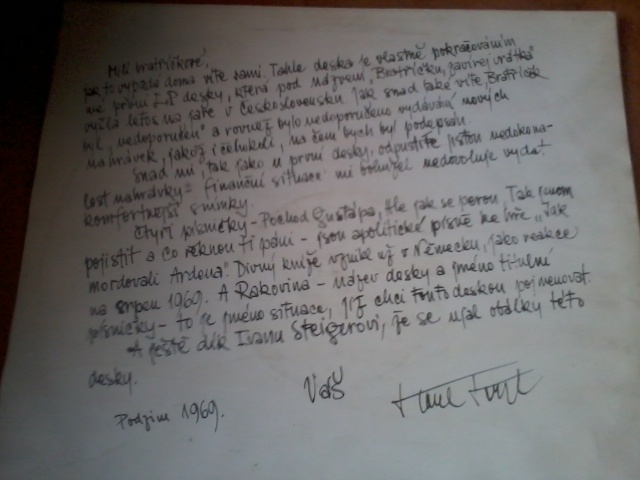 Milí bratříčkové,
jak to vypadá doma víte sami. Tahle deska je vlastně pokračováním
mé první LP desky, která pod názvem „Bratříčku, zavírej vrátka"
vyšla letos na jaře v Československu. Jak snad také víte, Bratříček
byl „nedoporučen" a rovněž bylo nedoporučeno vydávání nových
nahrávek, jakož i čehokoli, na čem bych byl podepsán.
Snad mi, tak jako u první desky, odpustíte jistou nedokona-
lost nahrávky – finanční situace mi bohužel nedovoluje vydat
komfortnější snímky.
Čtyři písničky – Pochod Gustapa, Ale jak se perou, Tak jsem
pojistit a Co řeknou tři páni – jsou apolitické písně ke hře „Jak
mordovali Ardena". Divný kníže vznikl už v Německu, jako reakce
na srpen 1969. A Rakovina – název desky a jméno titulní
písničky – to je jméno situace, již chci touto deskou pojmenovat.
A ještě dík Ivanu Steigerovi, že se ujal obálky této
desky.
Váš
Podzim 1969.